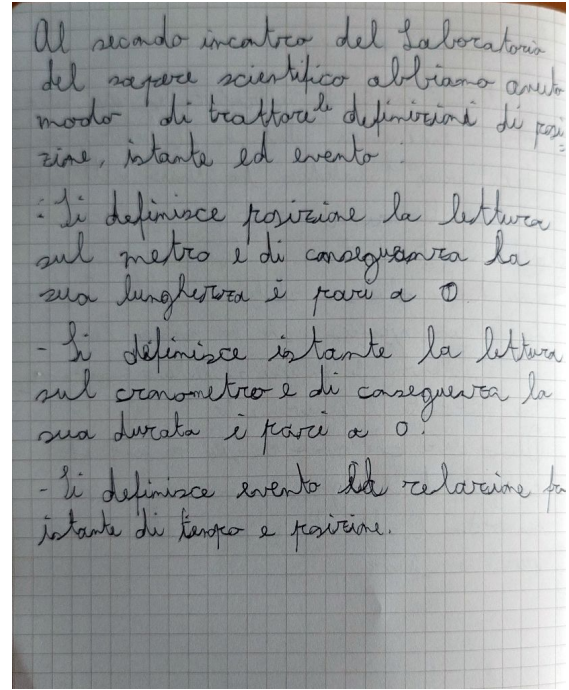 Al secondo incontro del Laboratorio
del sapere scientifico abbiamo avuto
modo di trattare le definizioni di posi
zine, istante ed evento :
- Si definisce posizione la lettura
sul metro e di conseguenza la
sua lunghezza è pari a 0
- Si definisce istante la lettura
sul cronometro e di conseguenza la
sua durata è pari a 0.
- Si definisce evento la relazione fra
istante di tempo e posizione.